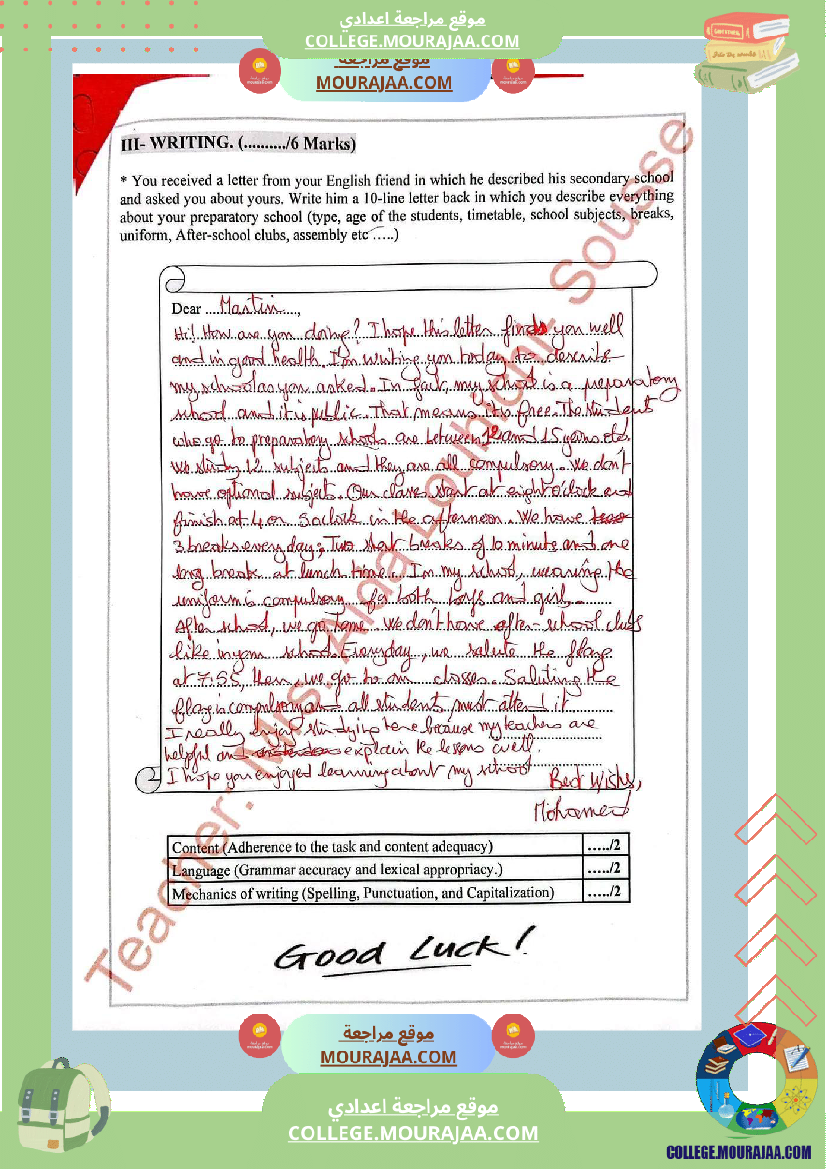 موقع مراجعة اعدادي
COLLEGE.MOURAJAA.COM
موقع مراجعة
MOURAJAA.COM
III- WRITING. (........../6 Marks)
* You received a letter from your English friend in which he described his secondary school
and asked you about yours. Write him a 10-line letter back in which you describe everything
about your preparatory school (type, age of the students, timetable, school subjects, breaks,
uniform, After-school clubs, assembly etc .....)
Dear ....Martin....,
Hi! How are you doing? I hope this letter finds you well
and in good health. I'm writing you today to describe
my school as you asked. In fact, my school is a preparatory
school and it is public. That means it is free. The student
who go to preparatory schools are between 12 and 15 years old.
We study 12 subjects and they are all compulsory. We don't
have optional subjects. Our classes start at eight o'clock and
finish at 4 or 5 o'clock in the afternoon. We have
3 breaks every day; Two short breaks of 10 minute and one
long break at lunch time. In my school, wearing the
uniform is compulsory for both boys and girls.
After school, we go home. We don't have after-school clubs
like in your school. Everyday, we salute the flag
at 7:55, then, we go to our classes. Saluting the
flag is compulsory and all students must attend it
I really enjoy studying here because my teachers are
helpful and explain the lessons well.
I hope you enjoyed learning about my school
Best Wishes,
Mohamed
Content (Adherence to the task and content adequacy) ...../2
Language (Grammar accuracy and lexical appropriacy.) ...../2
Mechanics of writing (Spelling, Punctuation, and Capitalization) ...../2
Good Luck!
Teacher: Mrs. Aida Louhichi- Sousse
موقع مراجعة
MOURAJAA.COM
موقع مراجعة اعدادي
COLLEGE.MOURAJAA.COM
COLLEGE.MOURAJAA.COM